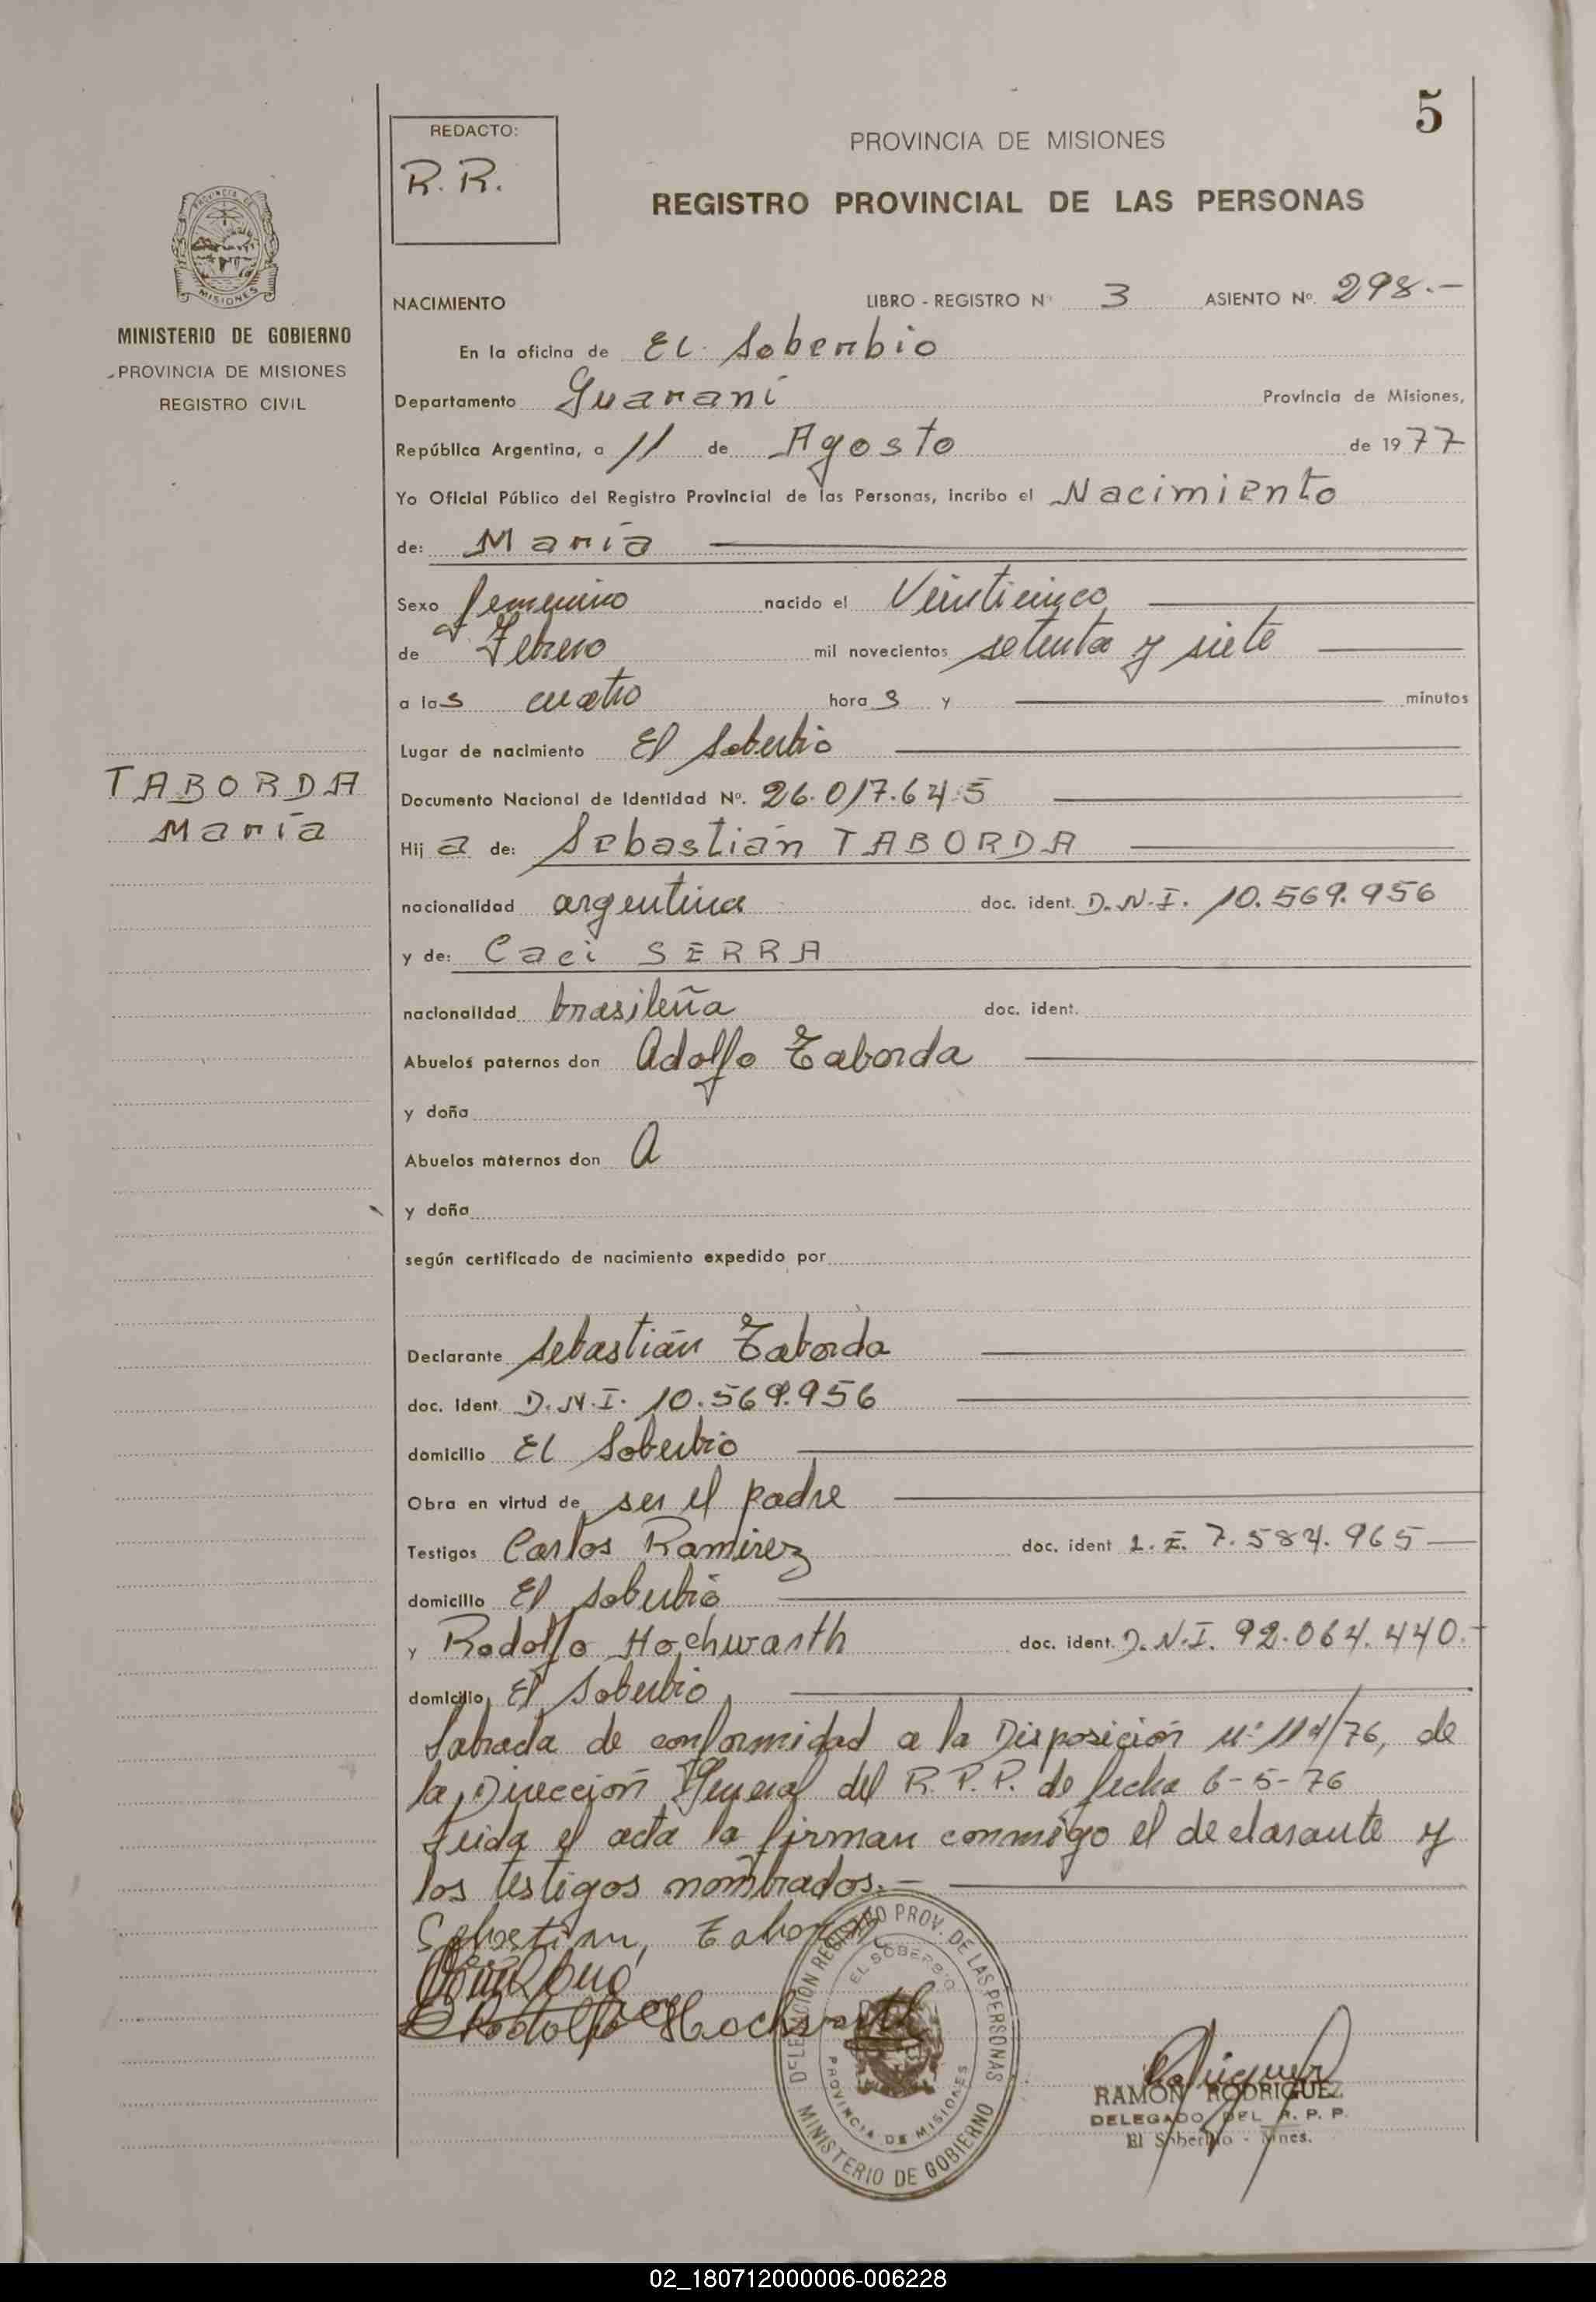 5
REDACTO:
R.R.
PROVINCIA DE MISIONES
REGISTRO PROVINCIAL DE LAS PERSONAS
PROVINCIA DE
MISIONES
MINISTERIO DE GOBIERNO
PROVINCIA DE MISIONES
REGISTRO CIVIL
NACIMIENTO LIBRO - REGISTRO Nº 3 ASIENTO Nº. 298.-
En la oficina de El Soberbio
Departamento Guaraní Provincia de Misiones,
República Argentina, a 11 de Agosto de 1977
Yo Oficial Público del Registro Provincial de las Personas, incribo el Nacimiento
de: María
Sexo femenino nacido el Veinticinco
de Febrero mil novecientos setenta y siete
a las cuatro horas y minutos
Lugar de nacimiento El Soberbio
TABORDA
María
Documento Nacional de Identidad Nº. 26.017.645
Hija de: Sebastián TABORDA
nacionalidad argentina doc. ident. D.N.I. 10.569.956
y de: Caci SERRA
nacionalidad brasileña doc. ident.
Abuelos paternos don Adolfo Taborda
y doña
Abuelos maternos don A
y doña
según certificado de nacimiento expedido por
Declarante Sebastián Taborda
doc. ident. D.N.I. 10.569.956
domicilio El Soberbio
Obra en virtud de ser el padre
Testigos Carlos Ramirez doc. ident L.E. 7.584.965
domicilio El Soberbio
y Rodolfo Hochwarth doc. ident. D.N.I. 92.064.440.-
domicilio El Soberbio
Labrada de conformidad a la Disposición Nº de
la Dirección General del R.P.P. de fecha 6-5-76
Leida el acta la firman conmigo el declarante y
los testigos nombrados.-
Sebastian, Taborda
Rodolfo Hochwarth
DELEGACION REGISTRO PROV. DE LAS PERSONAS
EL SOBERBIO
PROVINCIA DE MISIONES
MINISTERIO DE GOBIERNO
RAMON RODRIGUEZ
DELEGADO DEL R. P. P.
El Soberbio - Mnes.
02_180712000006-006228